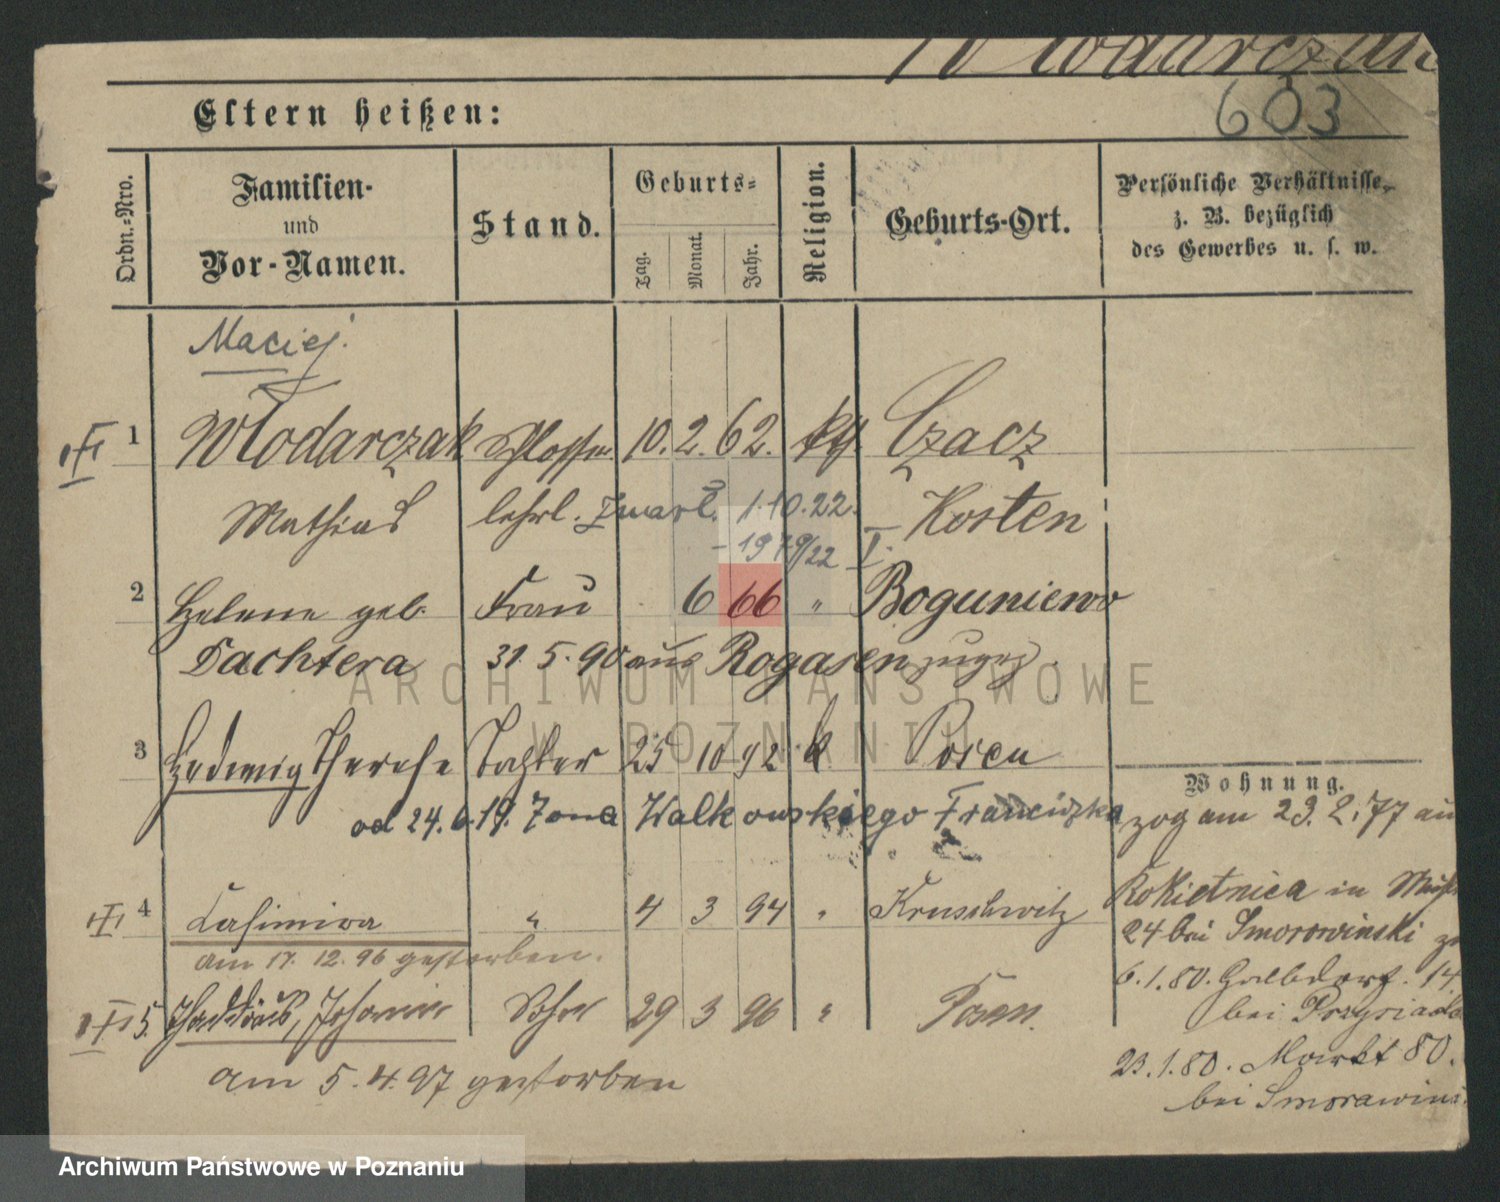 Włodarczak
603
Eltern heißen:
Ordn.-Nro.
Familien- und Vor-Namen.
Stand.
Geburts-
Tag.
Monat.
Jahr.
Religion.
Geburts-Ort.
Persönliche Verhältnisse, z. B. bezüglich des Gewerbes u. s. w.
Maciej.
1 Włodarczak Schlosser 10. 2. 62. kth. Czacz
Mathias lehrl. zmarł 1.10.22. Kosten
2 Helene geb. Frau 6 66 " Boguniewo
Tachtera 31. 5. 90 aus Rogasen zugez.
3 Hedwig Therese Tochter 25 10 92 k. Posen
Wohnung.
od 24. 6. 19. żona Walkowskiego Franciszka
zog am 23. 2. 77 aus
Rokietnica in
4 Casimira " 4 3 94 " Kruschwitz
24 bei Smorowinski
am 17. 12. 96 gestorben.
6. 1. 80. Halbdorf. 14.
5. Johann Sohn 29 3 96 " Posen.
bei
am 5. 4. 97 gestorben
23. 1. 80. Markt 80.
bei Smorawins
ARCHIWUM PAŃSTWOWE
W POZNANIU
Archiwum Państwowe w Poznaniu